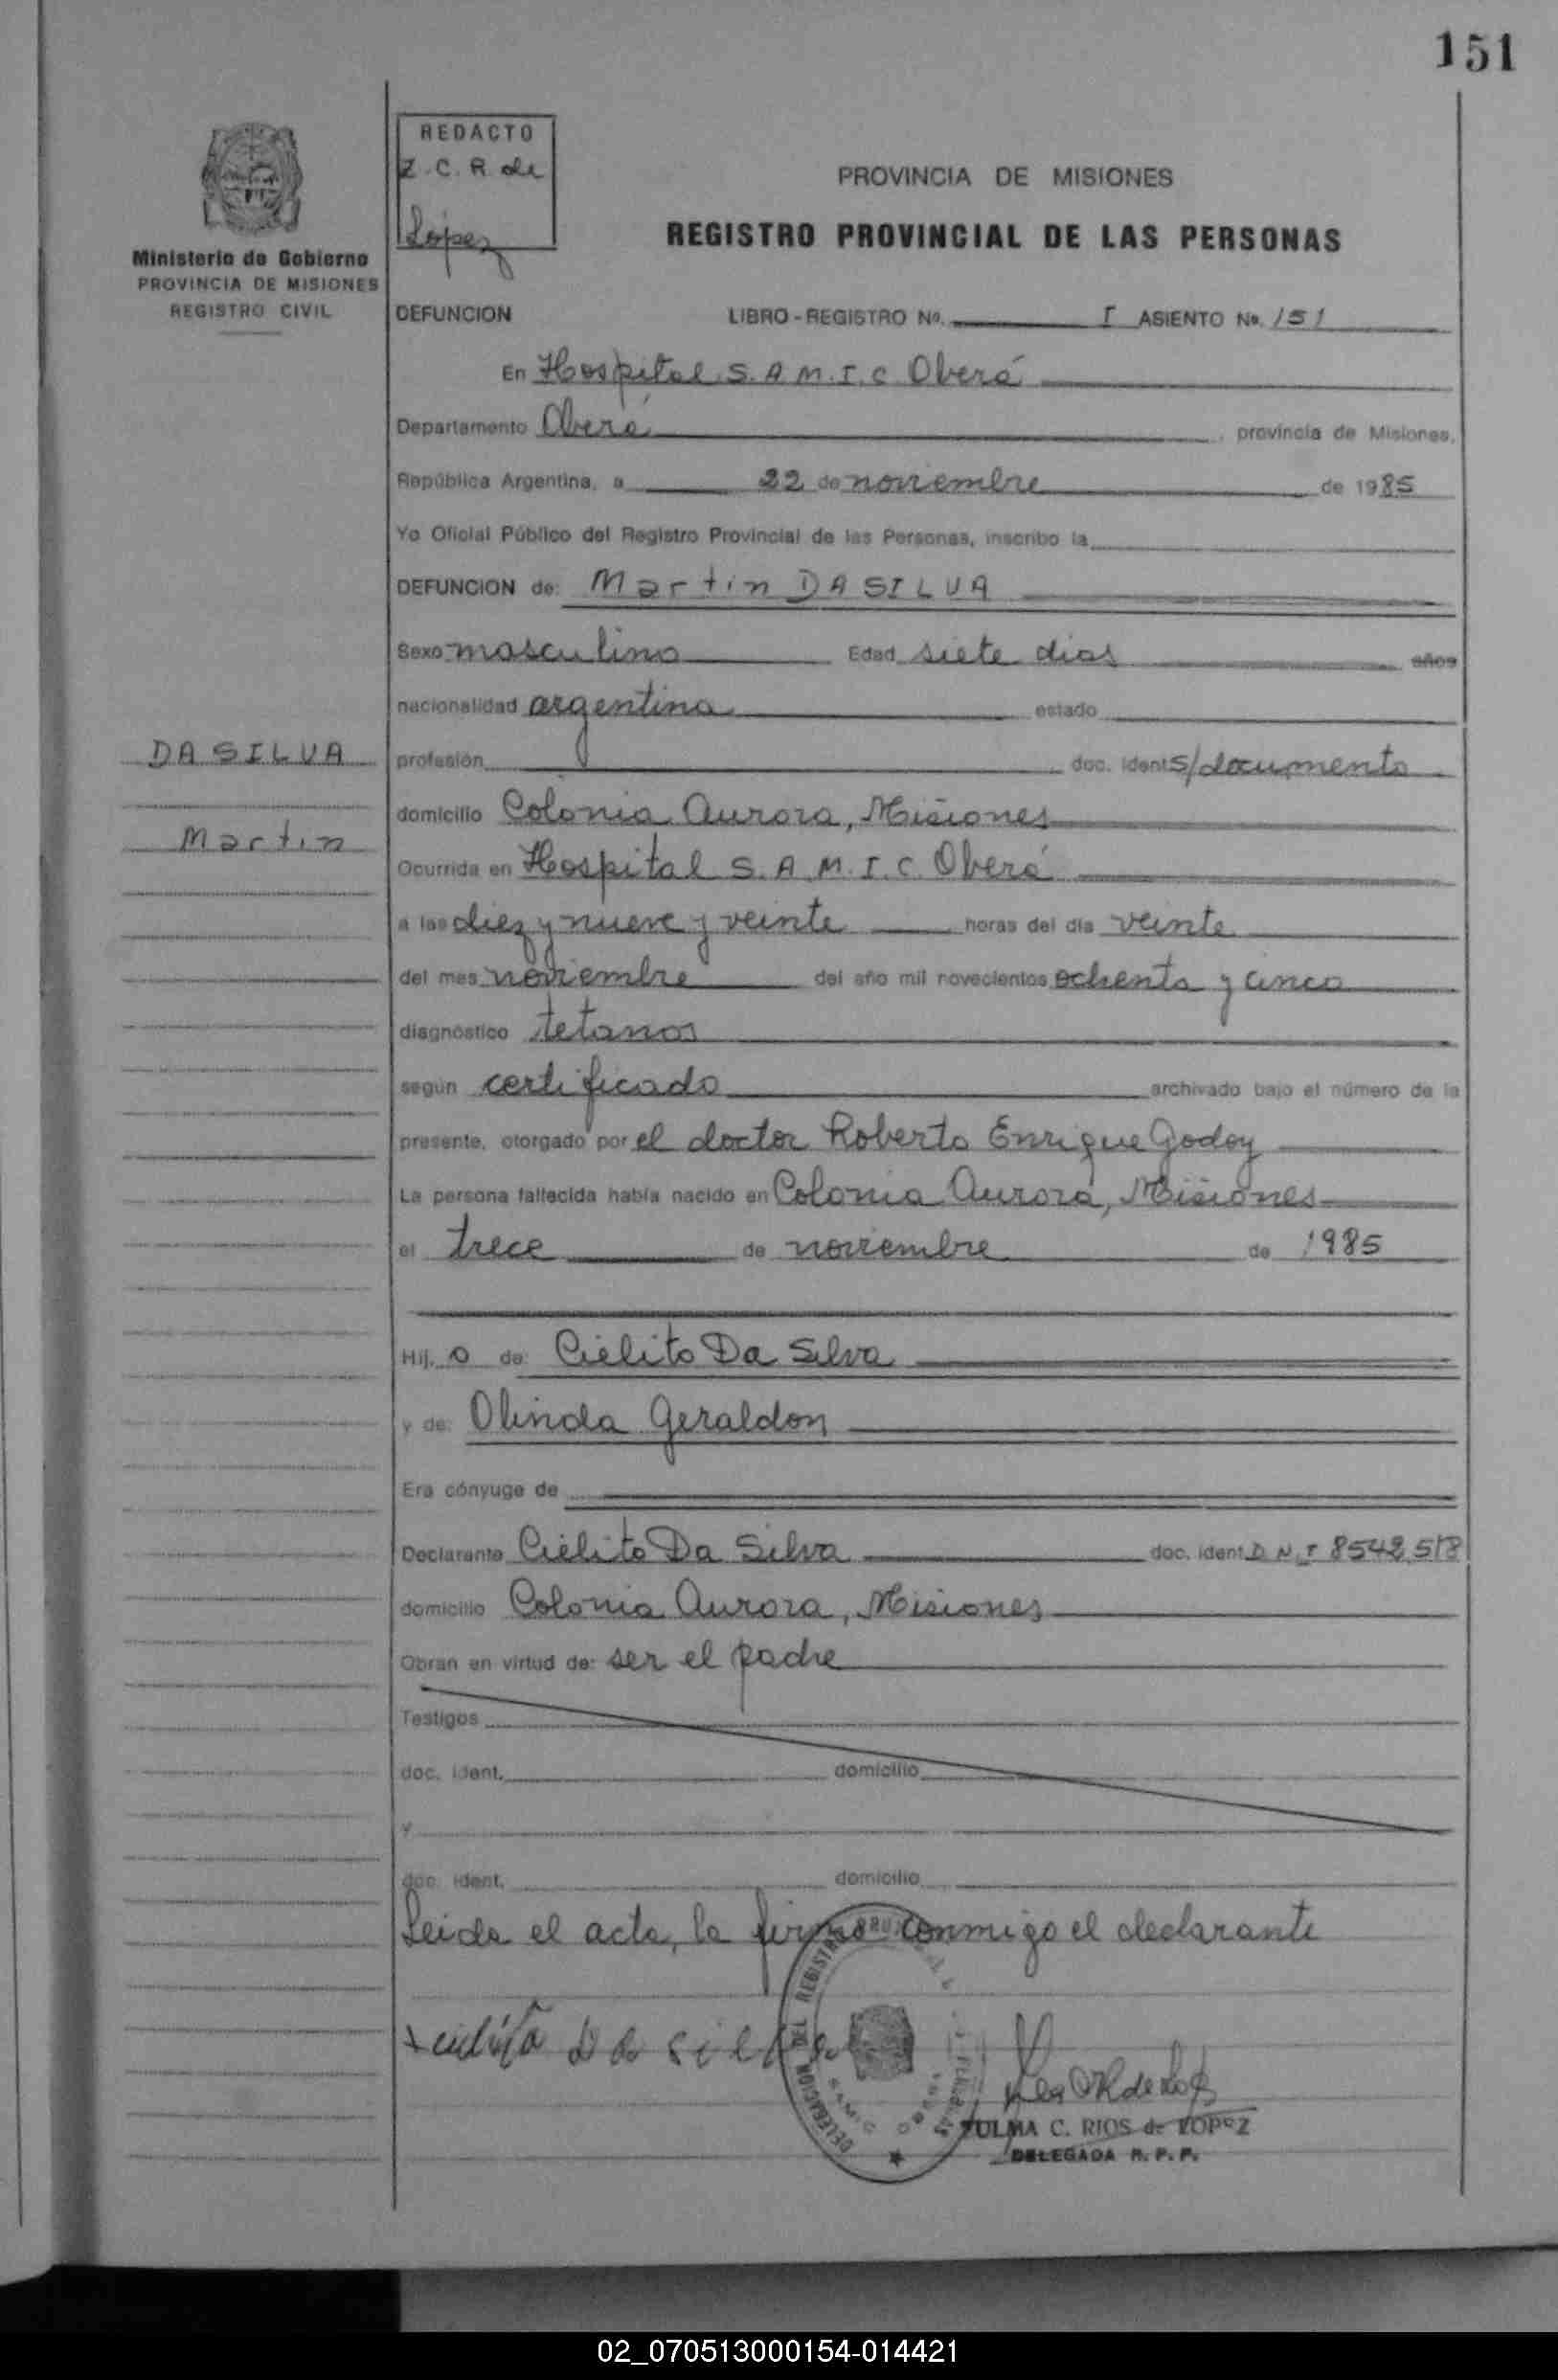 151
REDACTO
Z. C. R. de
Lopez
Ministerio de Gobierno
PROVINCIA DE MISIONES
REGISTRO CIVIL
PROVINCIA DE MISIONES
REGISTRO PROVINCIAL DE LAS PERSONAS
DEFUNCION LIBRO - REGISTRO No. I ASIENTO No. 151
En Hospital S. A. M. I. C Oberá
Departamento Oberá, provincia de Misiones,
República Argentina, a 22 de noviembre de 1985
Yo Oficial Público del Registro Provincial de las Personas, inscribo la
DEFUNCION de: Martin DA SILVA
Sexo masculino Edad siete dias años
nacionalidad argentina estado
DA SILVA
Martin
profesión doc. ident. s/documento
domicilio Colonia Aurora, Misiones
Ocurrida en Hospital S. A. M. I. C. Oberá
a las diez y nueve y veinte horas del día veinte
del mes noviembre del año mil novecientos ochenta y cinco
diagnóstico tetanos
según certificado archivado bajo el número de la
presente, otorgado por el doctor Roberto Enrique Godoy
La persona fallecida había nacido en Colonia Aurora, Misiones
el trece de noviembre de 1985
Hij o de: Cielito Da Silva
y de: Olinda Geraldon
Era cónyuge de
Declarante Cielito Da Silva doc. ident. D N I 8542518
domicilio Colonia Aurora, Misiones
Obran en virtud de: ser el padre
Testigos
doc. ident. domicilio
y
doc. ident. domicilio
Leida el acta, la firma conmigo el declarante
Da Silva
DELEGACION DEL REGISTRO
ZULMA C. RIOS de LOPEZ
DELEGADA R. P. P.
02_070513000154-014421